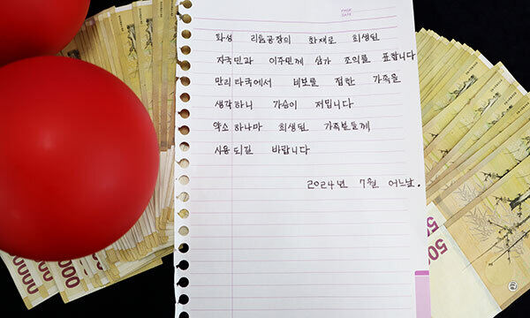 화성 리튬공장의 화재로 희생된
자국민과 이주민께 삼가 조의를 표합니다
만리 타국에서 비보를 접한 가족을
생각하니 가슴이 저밉니다
약소하나마 희생된 가족분들께
사용되길 바랍니다
2024년 7월 어느날.